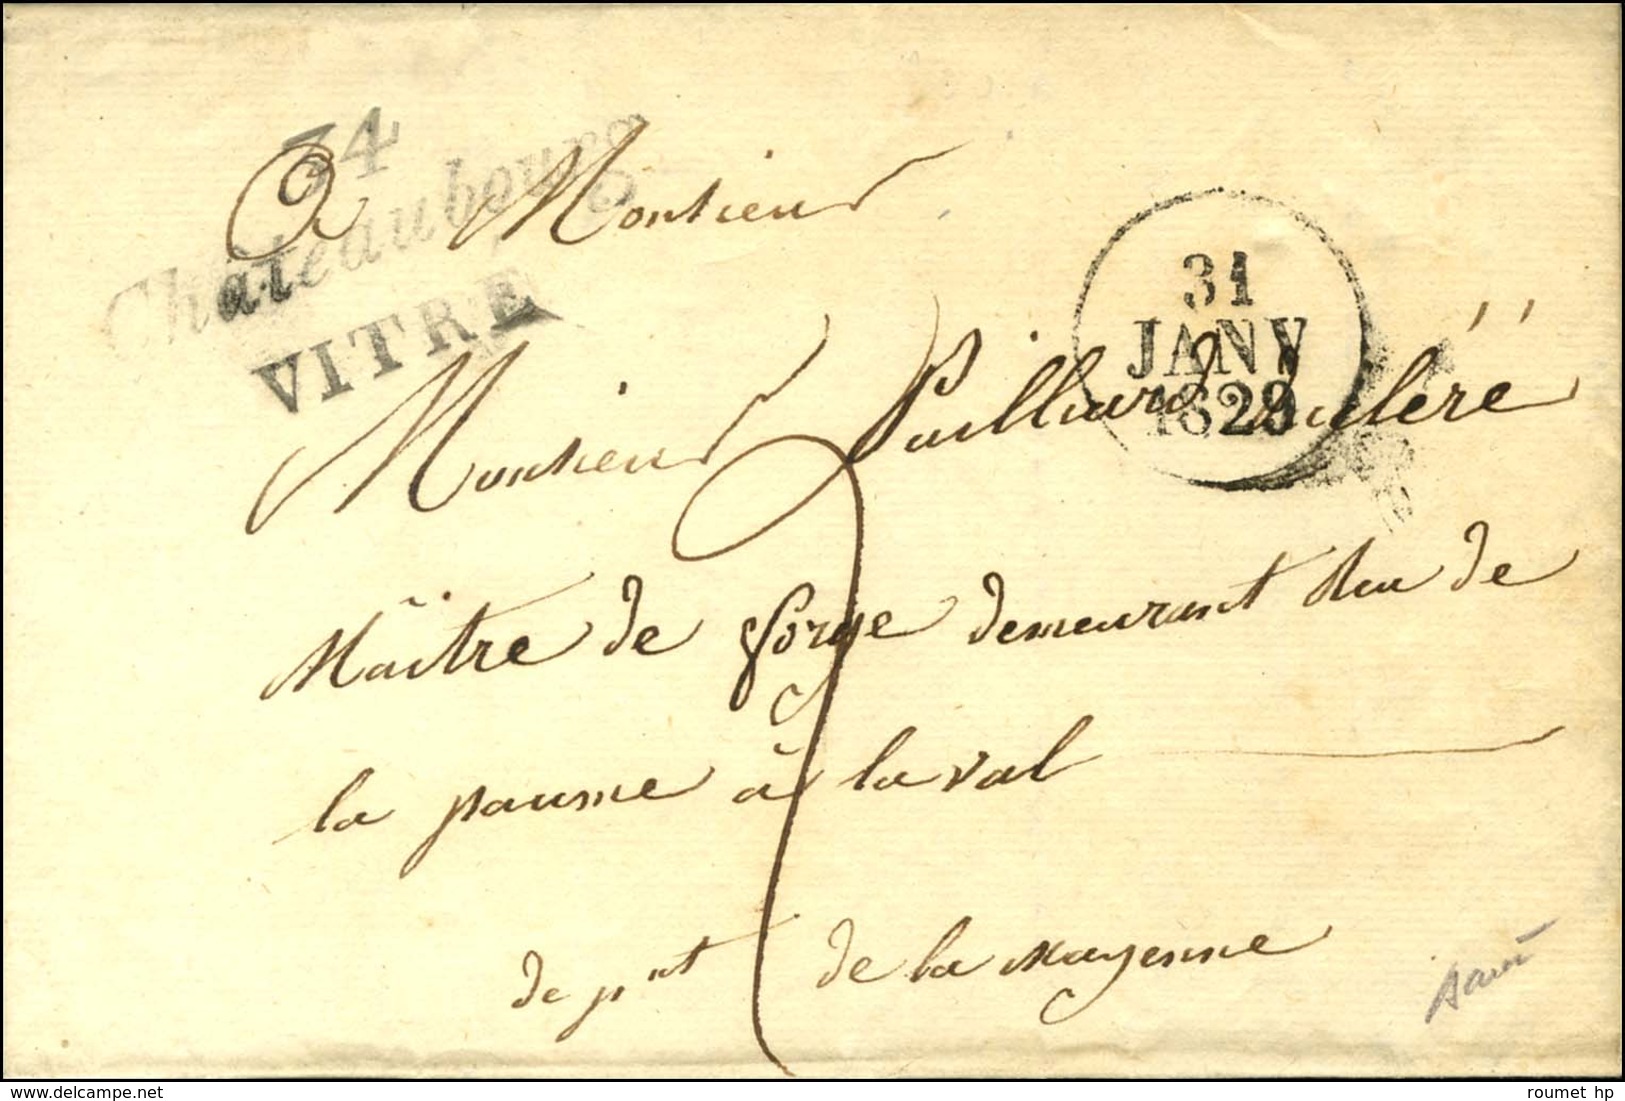 34
Châteaubourg
VITRÉ
A Monsieur
31
JANV
1829
Monsieur Paillard
Maître de forge demeurant Rue de
la paume à laval
depint de la Mayenne
delcampe.net
roumet hp